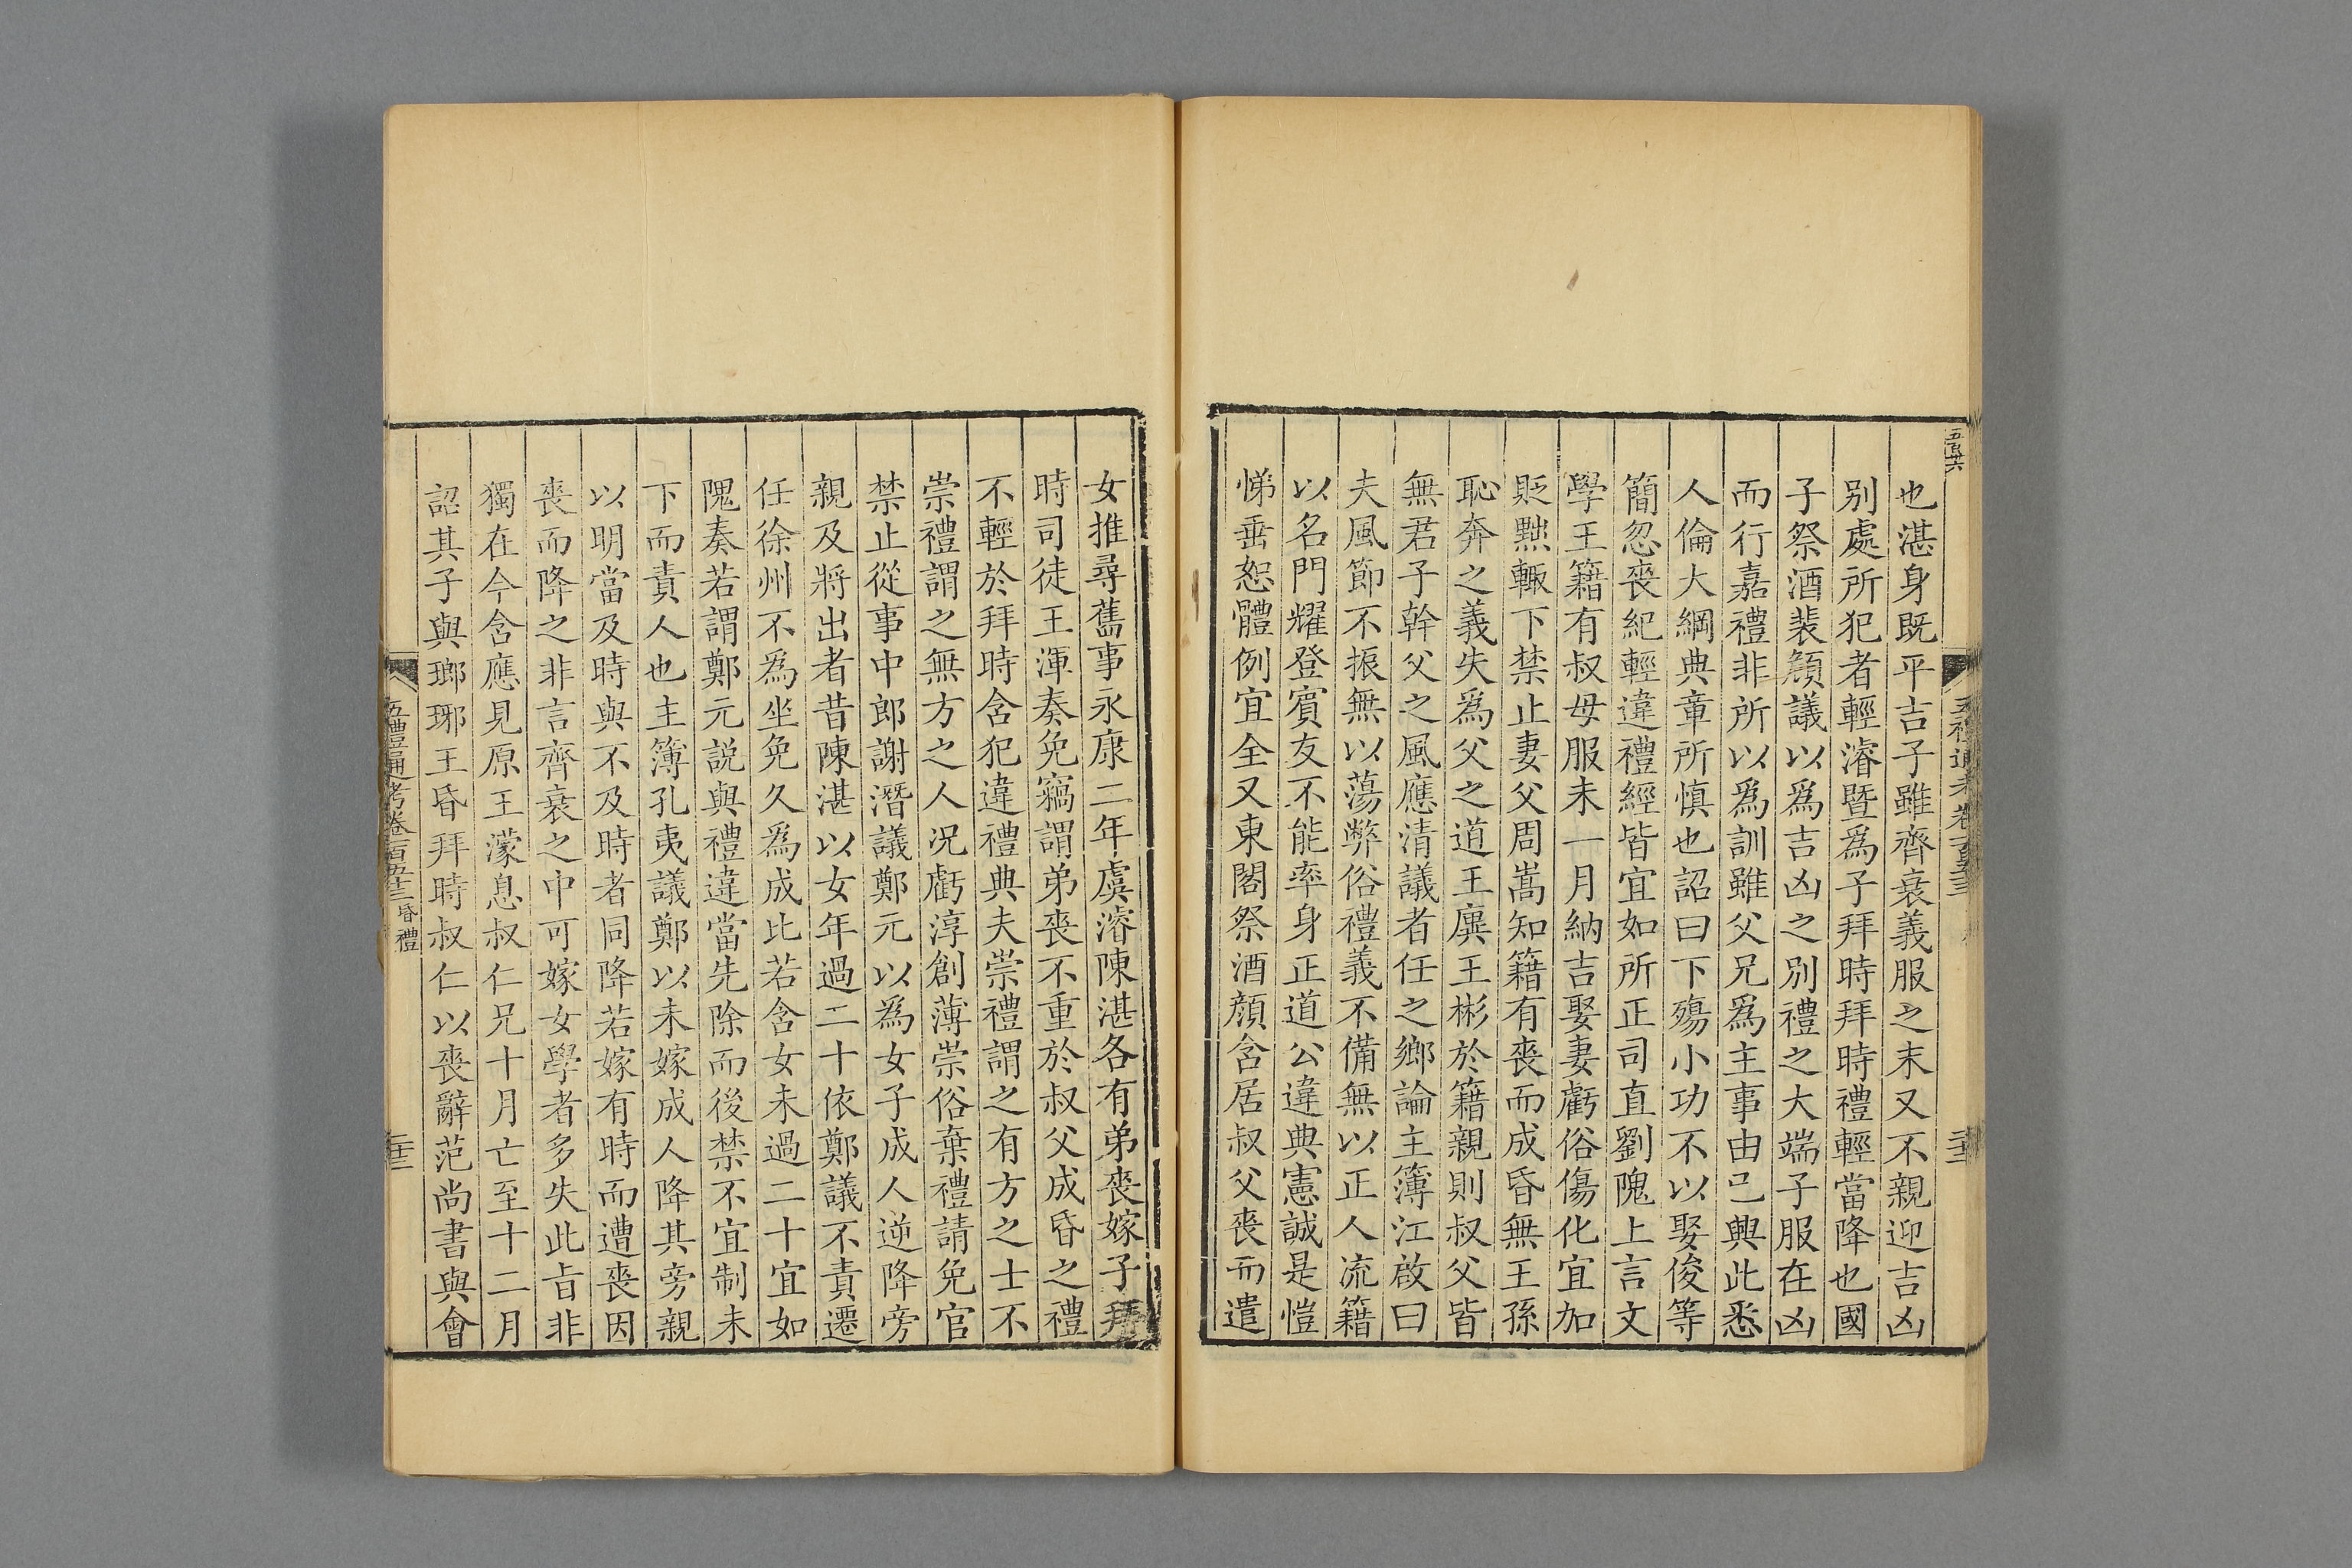 也湛身既平吉子雖齊衰義服之末又不親迎吉凶
別處所犯者輕濬暨爲子拜時拜時禮輕當降也國
子祭酒裴頠議以爲吉凶之別禮之大端子服在凶
而行嘉禮非所以爲訓雖父兄爲主事由己興此悉
人倫大綱典章所慎也詔曰下殤小功不以娶俊等
簡忽喪紀輕違禮經皆宜如所正司直劉隗上言文
學王籍有叔母服未一月納吉娶妻虧俗傷化宜加
貶黜輙下禁止妻父周嵩知籍有喪而成昏無王孫
恥奔之義失爲父之道王廙王彬於籍親則叔父皆
無君子幹父之風應清議者任之鄉論主簿江啟曰
夫風節不振無以蕩弊俗禮義不備無以正人流籍
以名門耀登賓友不能率身正道公違典憲誠是愷
悌垂恕體例宜全又東閤祭酒顏含居叔父喪而遣
女推尋舊事永康二年虞濬陳湛各有弟喪嫁子拜
時司徒王渾奏免竊謂弟喪不重於叔父成昏之禮
不輕於拜時含犯違禮典夫崇禮謂之有方之士不
崇禮謂之無方之人况虧淳創薄崇俗棄禮請免官
禁止從事中郎謝潛議鄭元以爲女子成人逆降旁
親及將出者昔陳湛以女年過二十依鄭議不責遷
任徐州不爲坐免久爲成比若含女未過二十宜如
隗奏若謂鄭元説與禮違當先除而後禁不宜制未
下而責人也主簿孔夷議鄭以未嫁成人降其旁親
以明當及時與不及時者同降若嫁有時而遭喪因
喪而降之非言齊衰之中可嫁女學者多失此旨非
獨在今含應見原王濛息叔仁兄十月亡至十二月
詔其子與瑯琊王昏拜時叔仁以喪辭范尚書與會
五禮通考卷一百五十三 昏禮
二十三